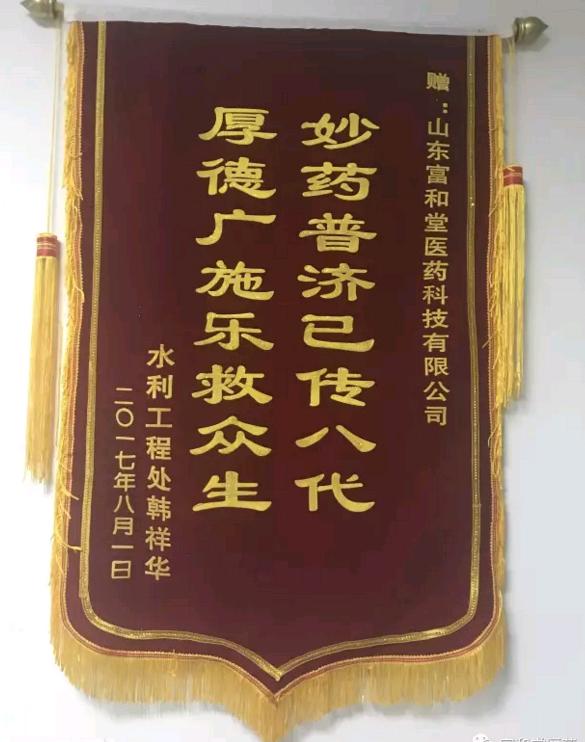 赠：山东富和堂医药科技有限公司
妙药普济已传八代
厚德广施乐救众生
水利工程处韩祥华
二〇一七年八月一日